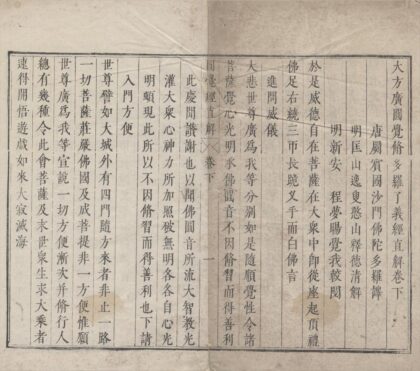 大方廣圓覺修多羅了義經直解卷下
唐罽賓國沙門佛陀多羅譯
明匡山逸叟憨山釋德清解
明新安　程夢暘覺我較閱
於是威德自在菩薩在大衆中卽從座起頂禮
佛足右繞三帀長跪叉手而白佛言
進問威儀
大悲世尊廣爲我等分別如是隨順覺性令諸
菩薩覺心光明承佛圓音不因修習而得善利
圓覺經直解　卷下　一
此慶聞讚謝也以聞佛圓音所流大智教光
灌大衆心神力所加照破無明各各自心光
明頓現此所以不因修習而得善利也下請
入門方便
世尊譬如大城外有四門隨方來者非止一路
一切菩薩莊嚴佛國及成菩提非一方便惟願
世尊廣爲我等宣說一切方便漸次并修行人
總有幾種令此會菩薩及末世衆生求大乘者
速得開悟遊戲如來大寂滅海